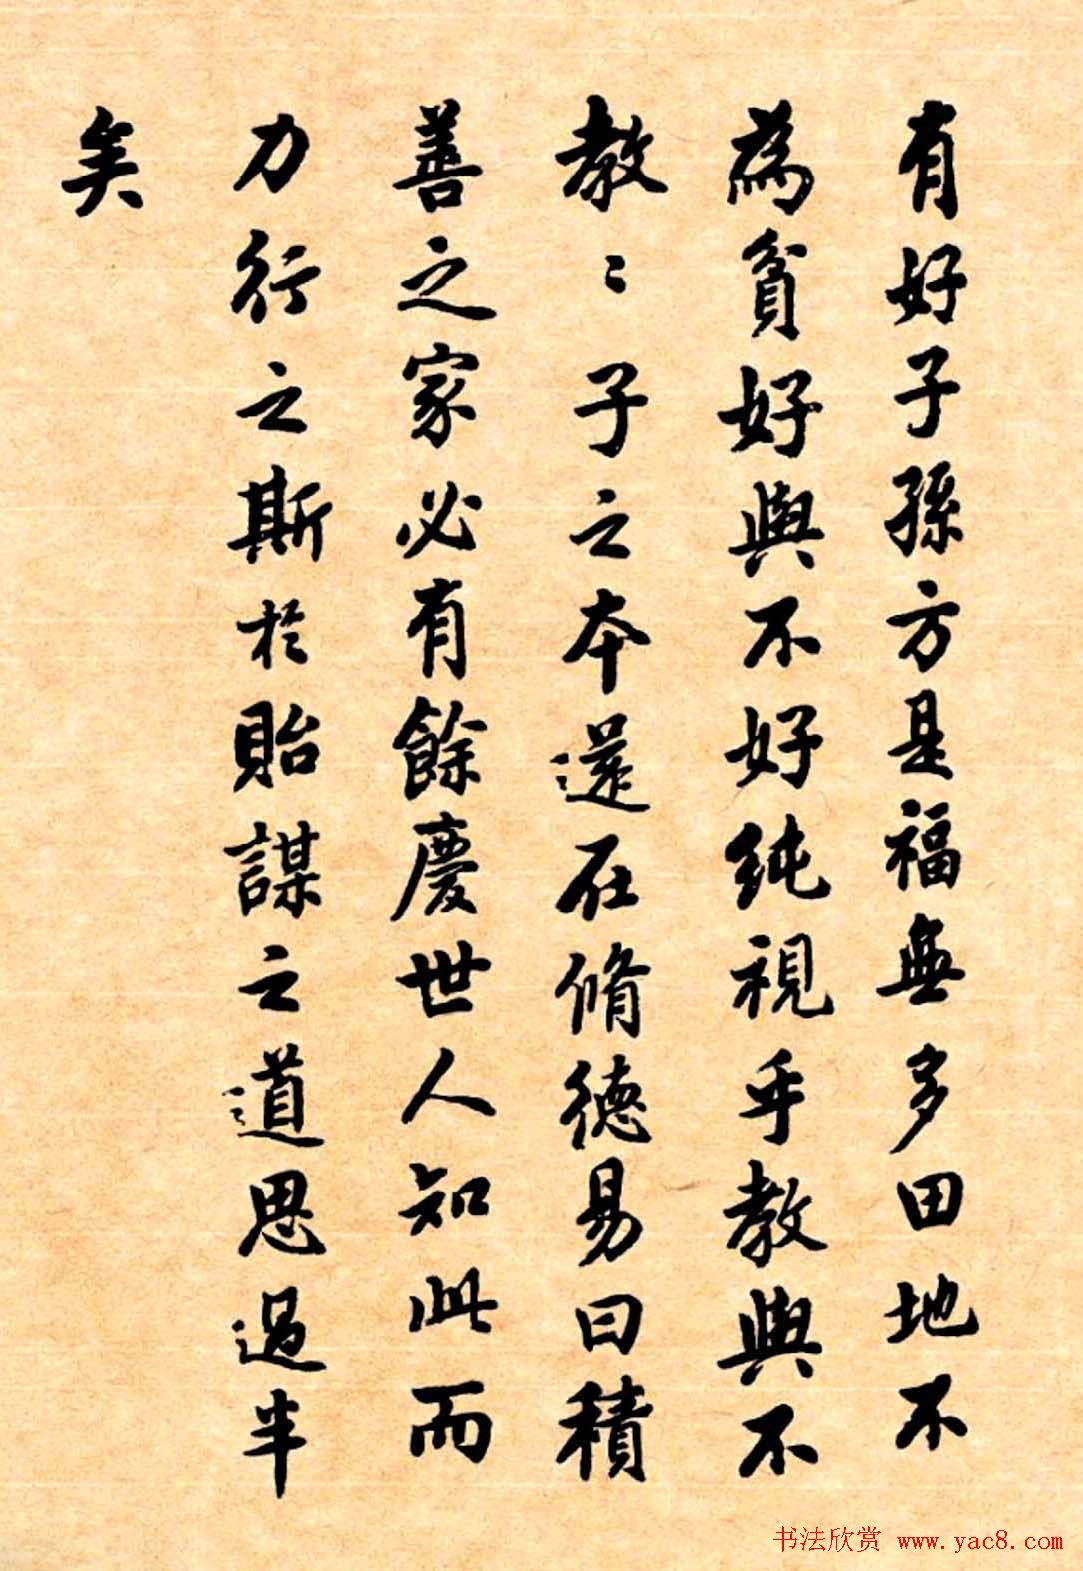 有好子孫方是福無多田地不
為貧好與不好純視乎教與不
教〻子之本還在脩德易曰積
善之家必有餘慶世人知此而
力行之斯於貽謀之道思過半
矣
书法欣赏 www.yac8.com